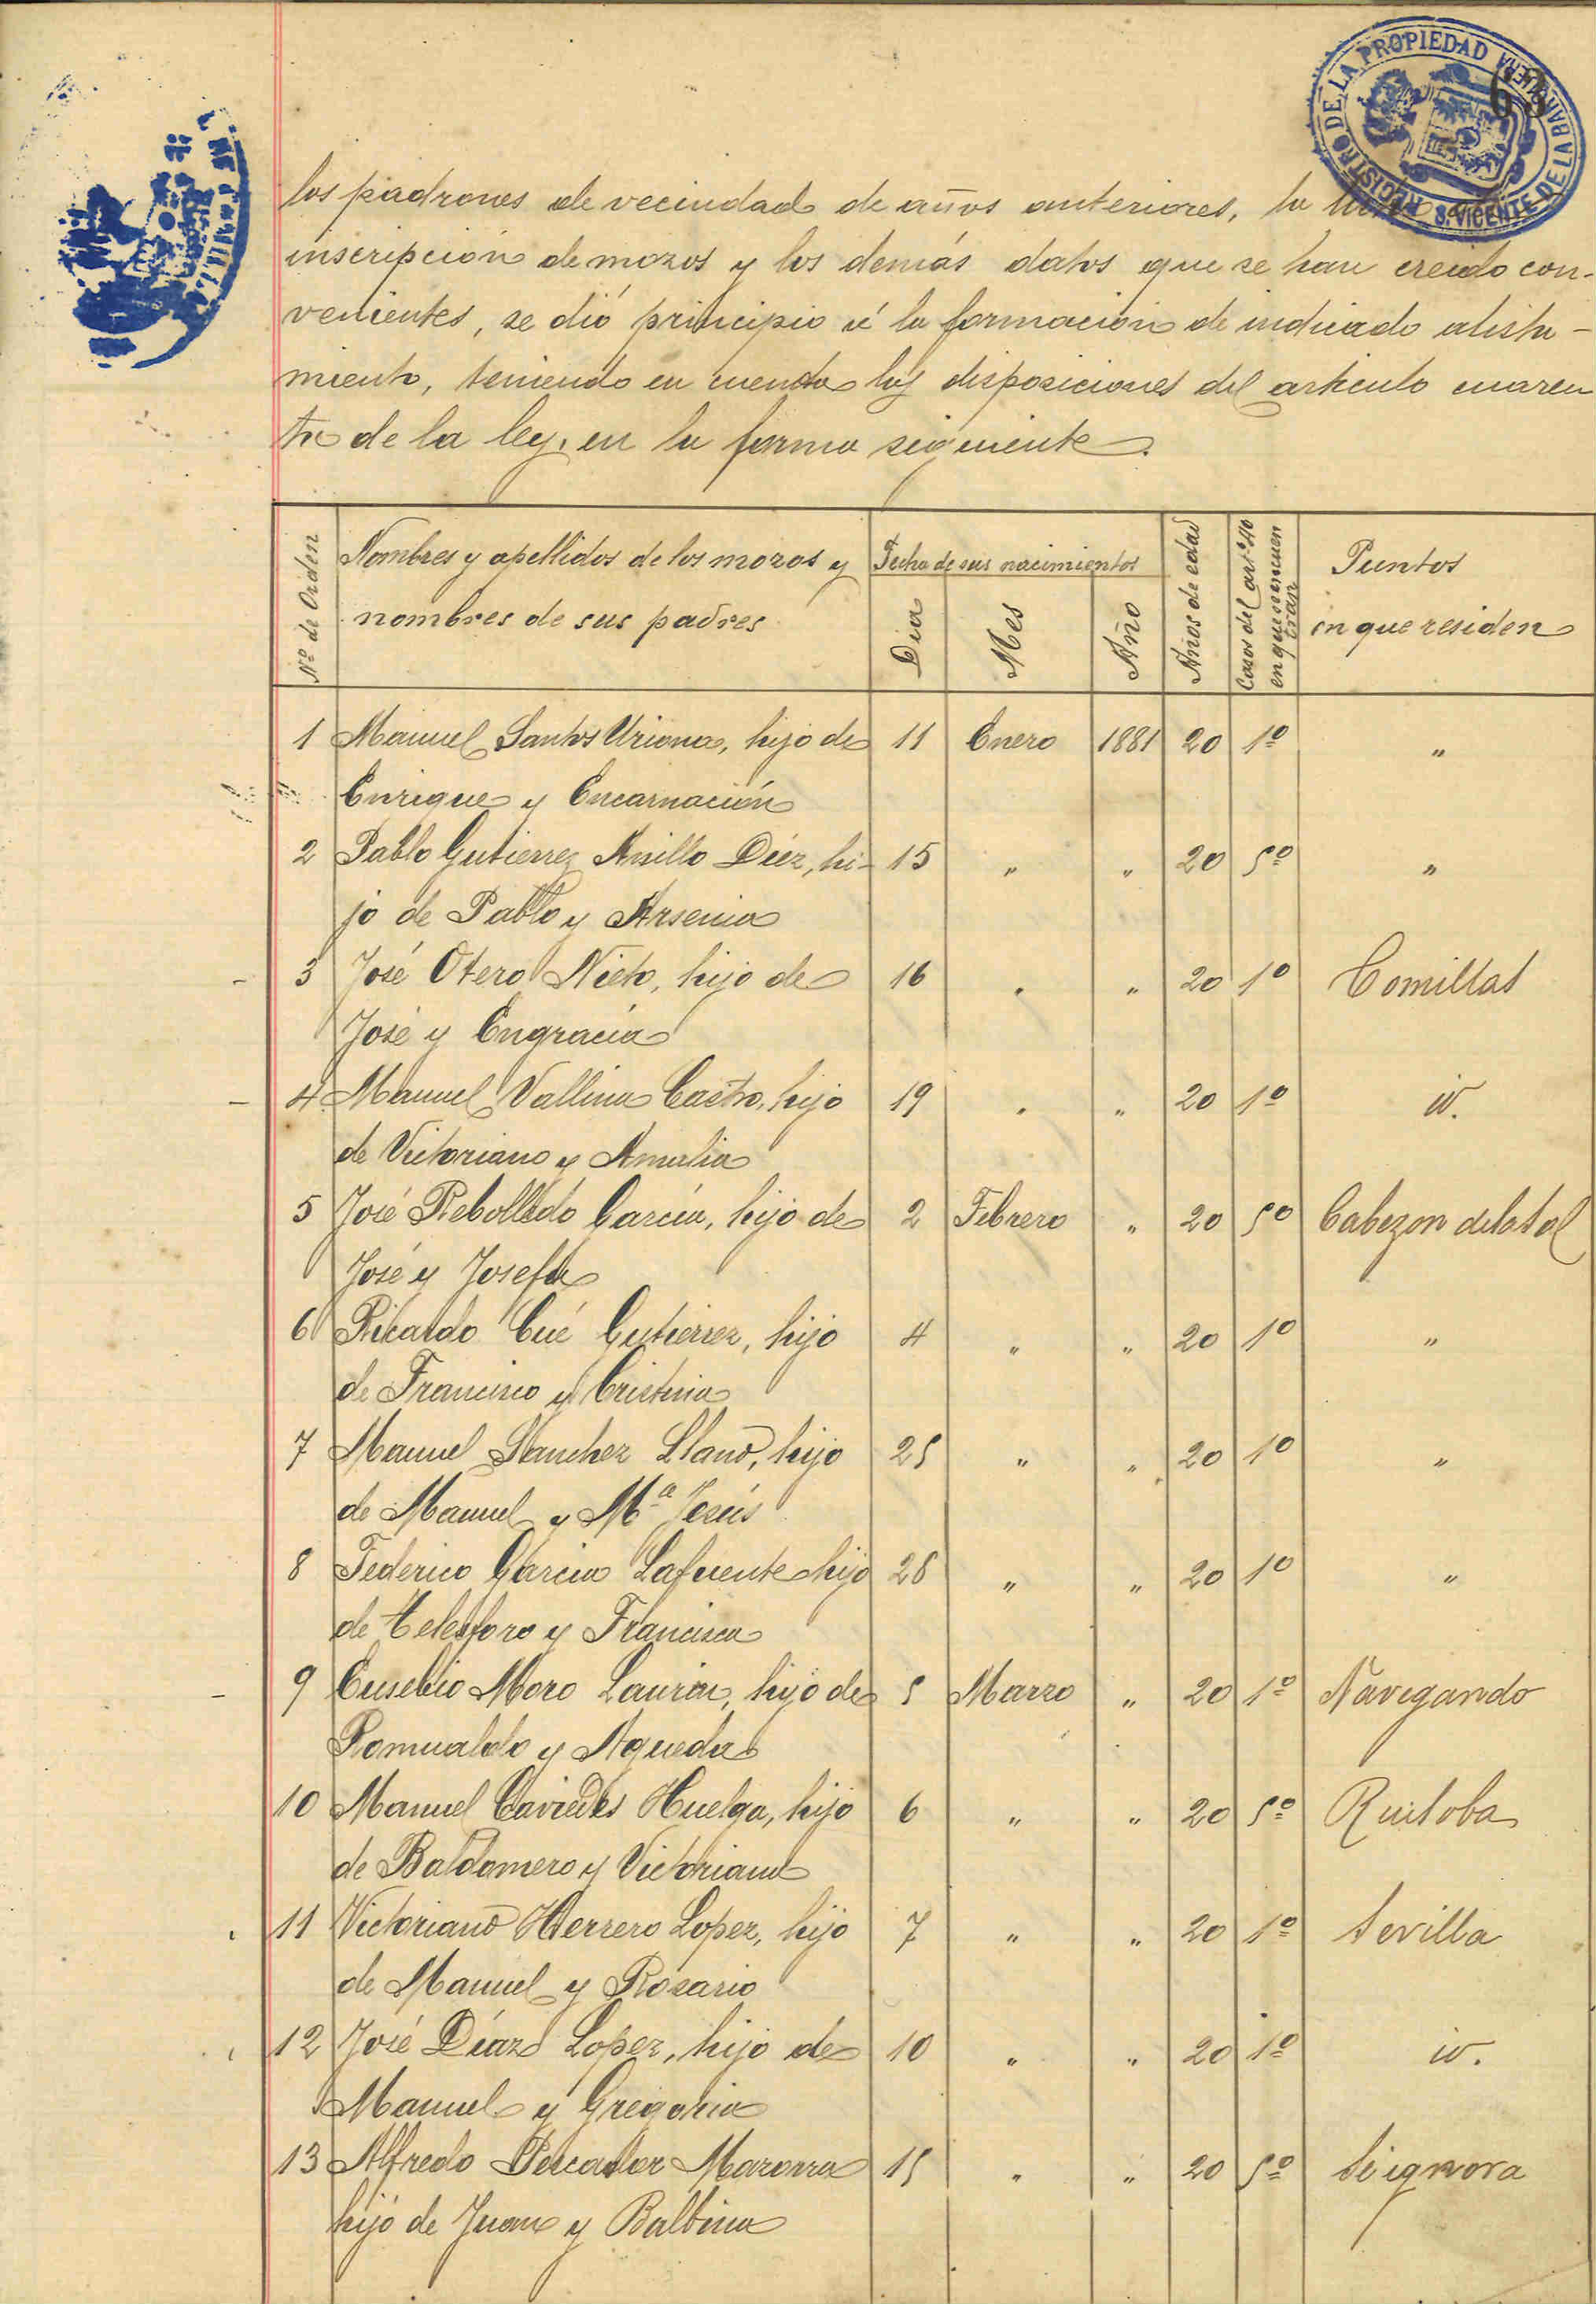 REGISTRO DE LA PROPIEDAD
S. VICENTE DE LA BARQUERA
63
los padrones de vecindad de años anteriores, la
inscripción de mozos y los demás datos que se han creido con-
venientes, se dió principio á la formación de indicado alista-
miento, teniendo en cuenta las disposiciones del artículo cuaren
ta de la ley, en la forma siguiente.
Nº de Orden Nombres y apellidos de los mozos y nombres de sus padres Fecha de sus nacimientos Dia Mes Año Años de edad Casos del artº 40 en que se encuen tran Puntos en que residen
1 Manuel Santos Uriona, hijo de 11 Enero 1881 20 1º "
Enrique y Encarnación
2 Pablo Gutierrez Anillo Diez, hi- 15 " " 20 5º "
jo de Pablo y Arsenia
3 José Otero Nieto, hijo de 16 " " 20 1º Comillas
José y Engracia
4 Manuel Vallina Castro, hijo 19 " " 20 1º id.
de Victoriano y Amalia
5 José Rebolledo García, hijo de 2 Febrero " 20 5º Cabezon de la Sal
José y Josefa
6 Ricardo Cué Gutierrez, hijo 4 " " 20 1º "
de Francisco y Cristina
7 Manuel Sanchez Llano, hijo 25 " " 20 1º "
de Manuel y Mª Jesús
8 Federico Garcia Lafuente hijo 28 " " 20 1º "
de Telesforo y Francisca
9 Eusebio Moro hijo de 5 Marzo " 20 1º Navegando
Romualdo y Agueda
10 Manuel Caviedes Huelga, hijo 6 " " 20 5º Ruiloba
de Baldomero y Victoriana
11 Victoriano Herrero Lopez, hijo 7 " " 20 1º Sevilla
de Manuel y Rosario
12 José Díaz Lopez, hijo de 10 " " 20 1º id.
Manuel y Gregoria
13 Alfredo Pescador Maronna 15 " " 20 5º Se ignora
hijo de Juan y Balbina